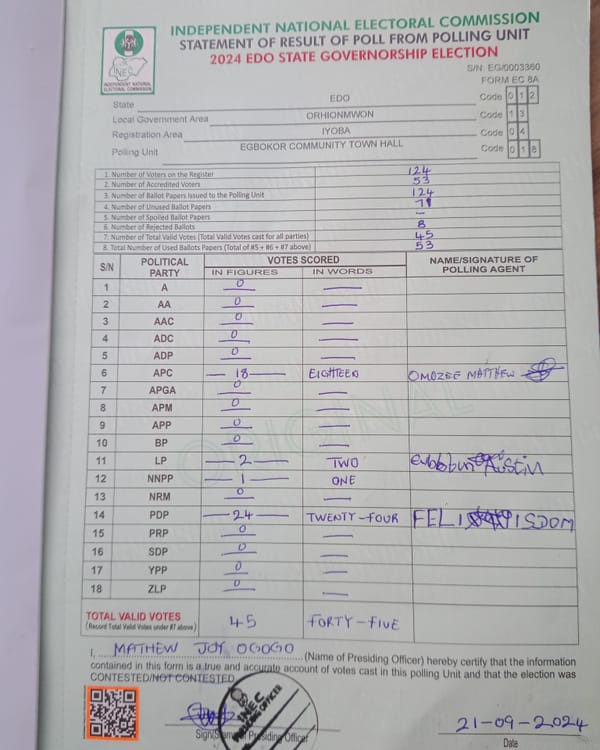 INDEPENDENT NATIONAL ELECTORAL COMMISSION
STATEMENT OF RESULT OF POLL FROM POLLING UNIT
2024 EDO STATE GOVERNORSHIP ELECTION
INEC
INDEPENDENT NATIONAL
ELECTORAL COMMISSION
S/N: EG/0003360
FORM EC 8A
State EDO Code 0 1 2
Local Government Area ORHIONMWON Code 1 3
Registration Area IYOBA Code 0 4
Polling Unit EGBOKOR COMMUNITY TOWN HALL Code 0 1 8
1. Number of Voters on the Register 124
2. Number of Accredited Voters 53
3. Number of Ballot Papers Issued to the Polling Unit 124
4. Number of Unused Ballot Papers 71
5. Number of Spoiled Ballot Papers –
6. Number of Rejected Ballots 8
7. Number of Total Valid Votes (Total Valid Votes cast for all parties) 45
8. Total Number of Used Ballots Papers (Total of #5 + #6 + #7 above) 53
S/N POLITICAL PARTY VOTES SCORED NAME/SIGNATURE OF POLLING AGENT
IN FIGURES IN WORDS
1 A 0 —
2 AA 0 —
3 AAC 0 —
4 ADC 0 —
5 ADP 0 —
6 APC — 18 — EIGHTEEN OMOZEE MATTHEW
7 APGA 0 —
8 APM 0 —
9 APP 0 —
10 BP 0 —
11 LP — 2 — TWO Austin
12 NNPP — 1 — ONE
13 NRM 0 —
14 PDP — 24 — TWENTY-FOUR
15 PRP 0 —
16 SDP 0 —
17 YPP 0 —
18 ZLP 0 —
TOTAL VALID VOTES 45 FORTY-FIVE
(Record Total Valid Votes under #7 above)
ORIGINAL
I, MATHEW JOY OGOGO (Name of Presiding Officer) hereby certify that the information
contained in this form is a true and accurate account of votes cast in this polling Unit and that the election was
CONTESTED/NOT CONTESTED
INEC
PRESIDING OFFICER
Sign/Stamp of Presiding Officer
21-09-2024
Date